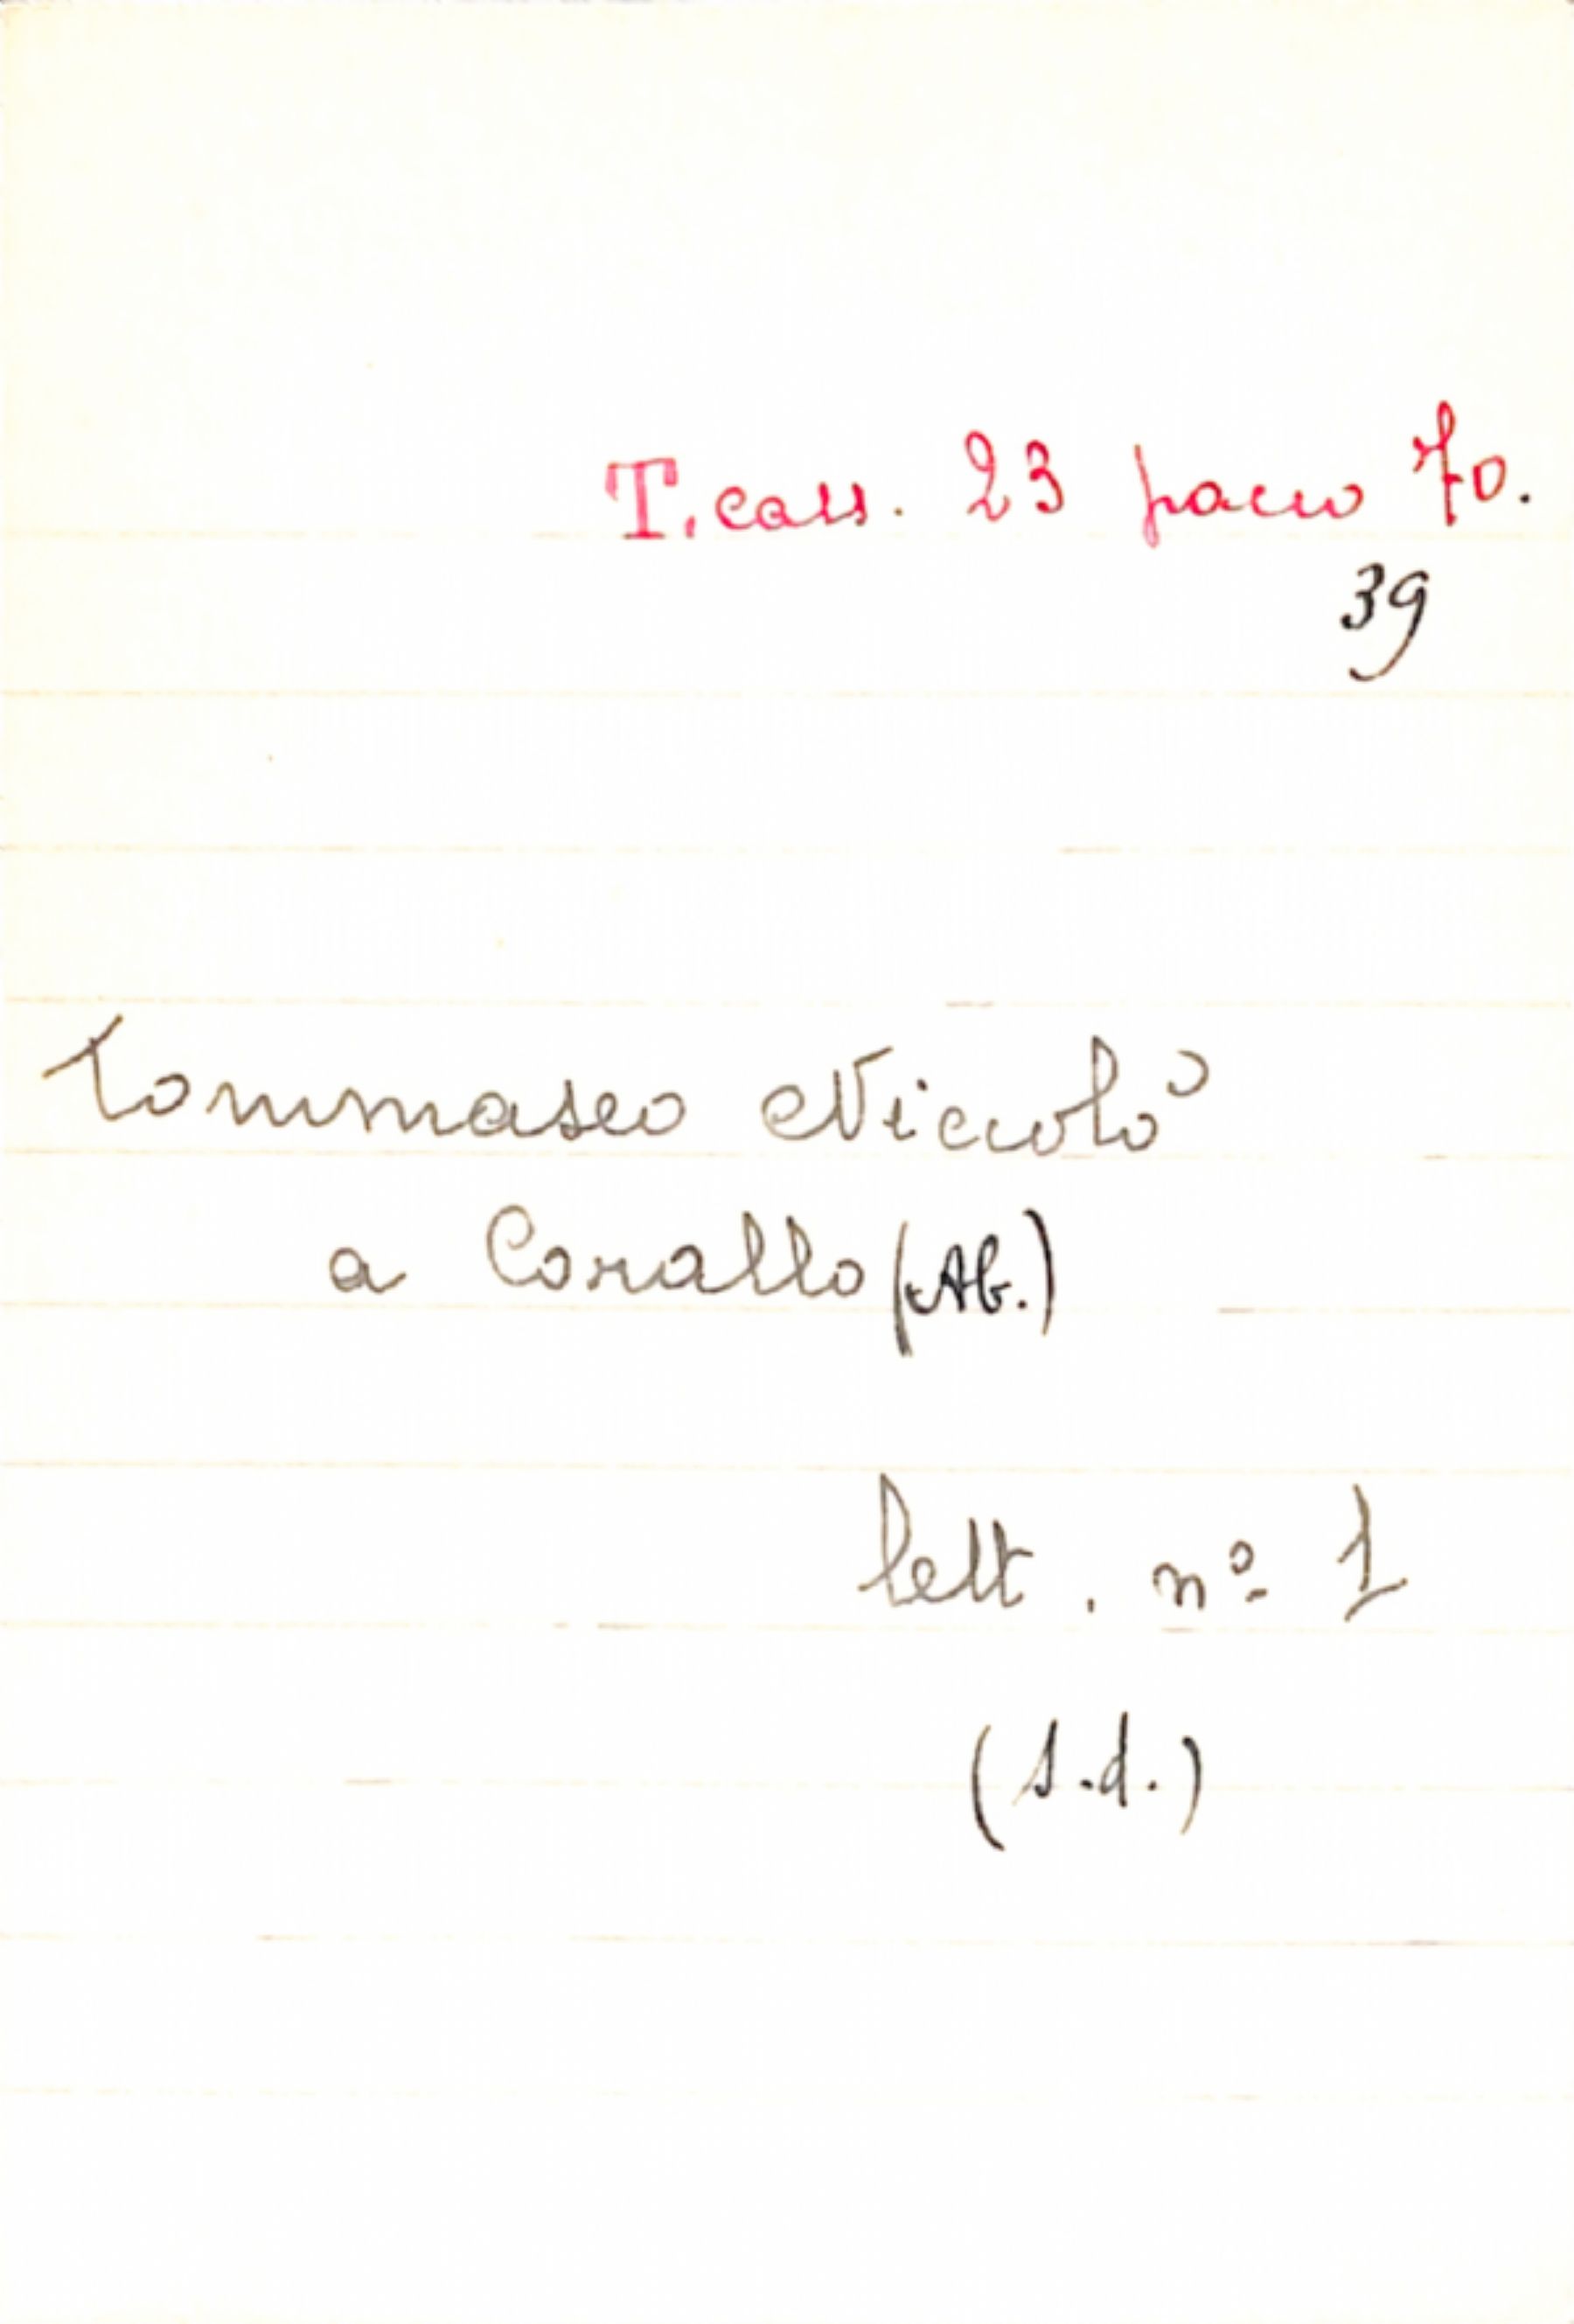 T. cass. 23 pacco 70.
39
Tommaseo Niccolò
a Corallo (Ab.)
lett. nº 1
(s.d.)